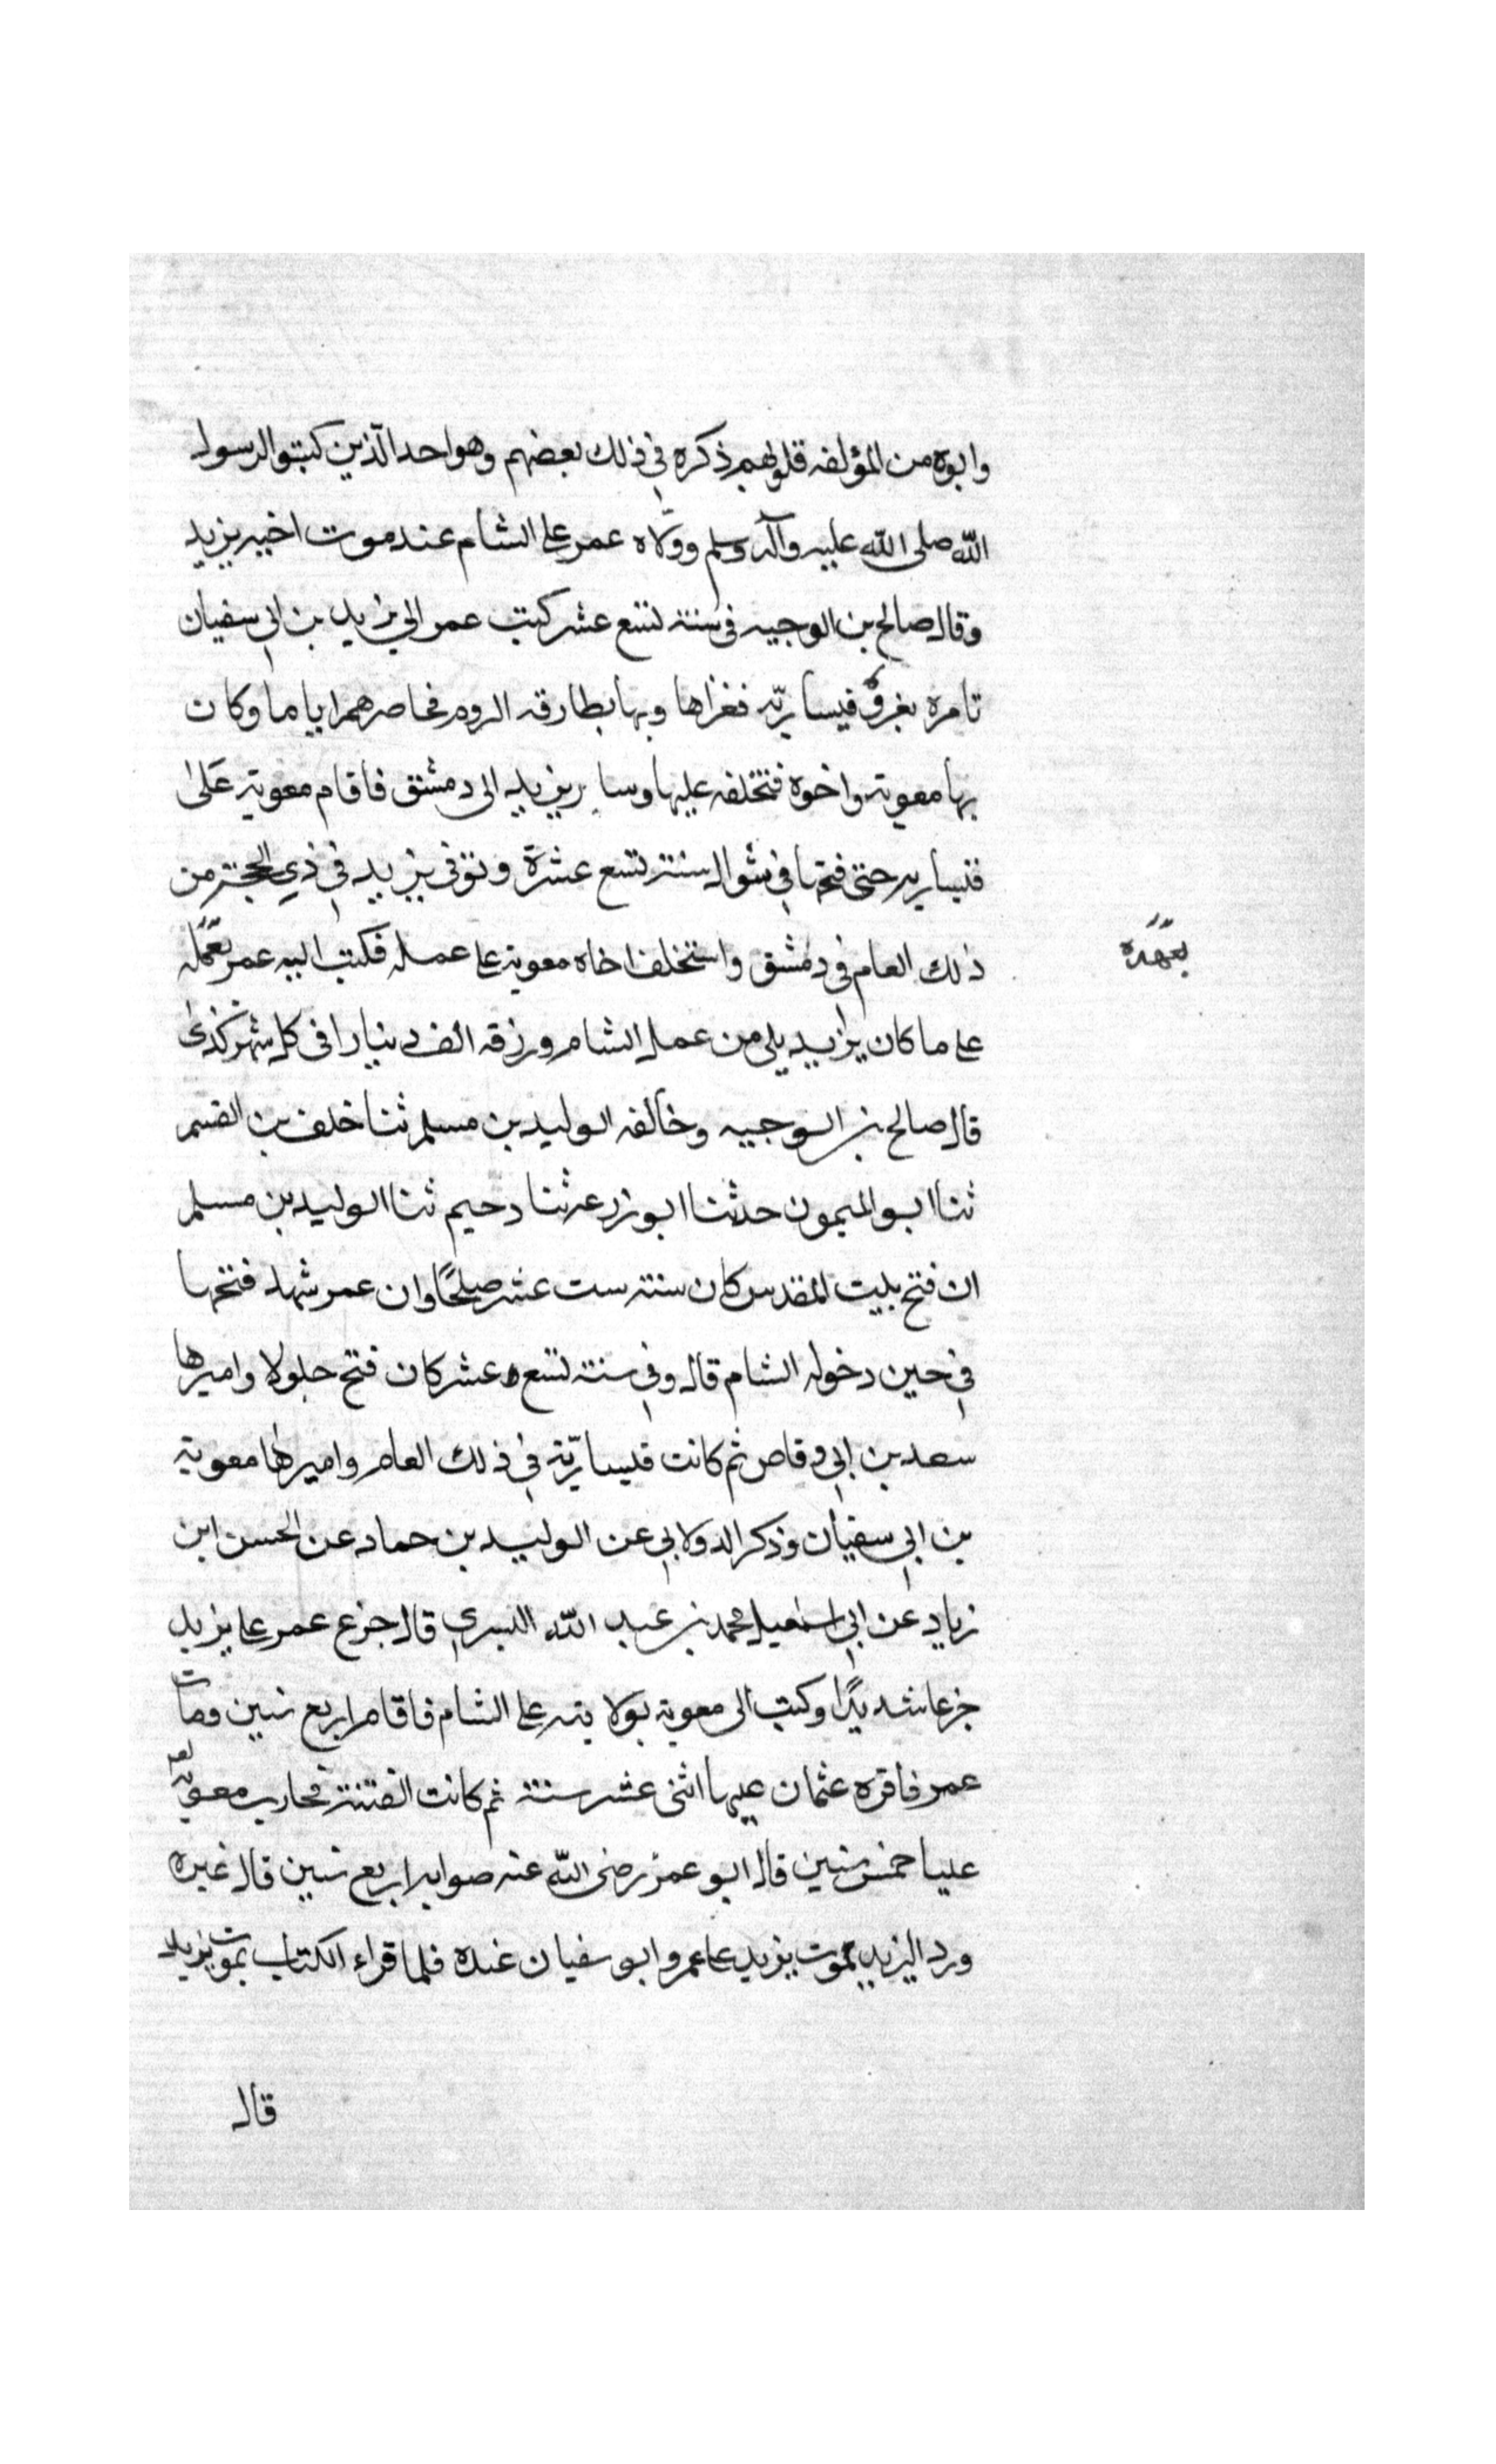 وابوه من المؤلفه قلوبهم ذكره في ذلك بعضهم وهو احد الذين كتبوا لرسول
الله صلى الله عليه وآله وسلم وولاه عمر على الشام عند موت اخيه يزيد
وقال صالح بن الوجيه في سنة تسع عشر كتب عمر الى يزيد بن ابي سفيان
تامره بغزو قيساريّه فغزاها وبها بطارقه الروم فحاصرهم اياما وكان
بها معوية واخوه فتخلفه عليها وسار يزيد الى دمشق فاقام معوية على
قيساريه حتى فتحها في شوال سنة تسع عشرة وتوفى يزيد في ذي الحجة من
ذلك العام في دمشق واستخلف اخاه معوية على عمله فكتب اليه عمر بعمله
بعهده
على ما كان يزيد يلي من عمل الشام ورزقه الف دينارا في كل شهر كذى
قال صالح بن الوجيه وخالفه الوليد بن مسلم ثنا خلف بن القسم
ثنا ابو الميمون حدثنا ابو زرعه ثنا دحيم ثنا الوليد بن مسلم
ان فتح بيت المقدس كان سنة ست عشر صلحًا وان عمر شهد فتحها
في حين دخوله الشام قال وفي سنة تسع عشر كان فتح جلولا واميرها
سعد بن ابي وقاص ثم كانت قيساريّة في ذلك العام واميرها معوية
بن ابي سفيان وذكر الدولابي عن الوليد بن حماد عن الحسن ابن
زياد عن ابي اسمعيل محمد بن عبد الله البسري قال جزع عمر على يزيد
جزعا شديدًا وكتب الى معوية بولايته على الشام فاقام اربع سنين ومات
عمر فاقره عثمان عليها اثنى عشر سنة ثم كانت الفتنة فحارب معوية
عليا خمس سنين قال ابو عمر رضى الله عنه صوابه اربع سنين قال غيره
ورد اليزيد بموت يزيد على عمر وابو سفيان عنده فلما قراء الكتاب بموت يزيد
قال